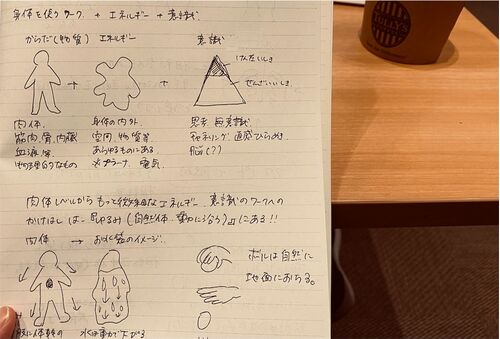 身体を使うワーク + エネルギー + 意識
からだ(物質) エネルギー 意識
けんざいいしき
せんざいいしき
肉体 身体の内外 思考 無意識
筋肉、骨、内臓 空間、物質等 チャネリング 直感 ひらめき
血液 等 あらゆるものにある 脳(?)
物理的なもの ※プラーナ、電気
肉体レベルから もっと微細なエネルギー、意識のワークへの
かけはしは (自然体、重力に沿う)にある!!
肉体 → お水袋のイメージ
ボールは自然に
地面におちる。
TULLY'S